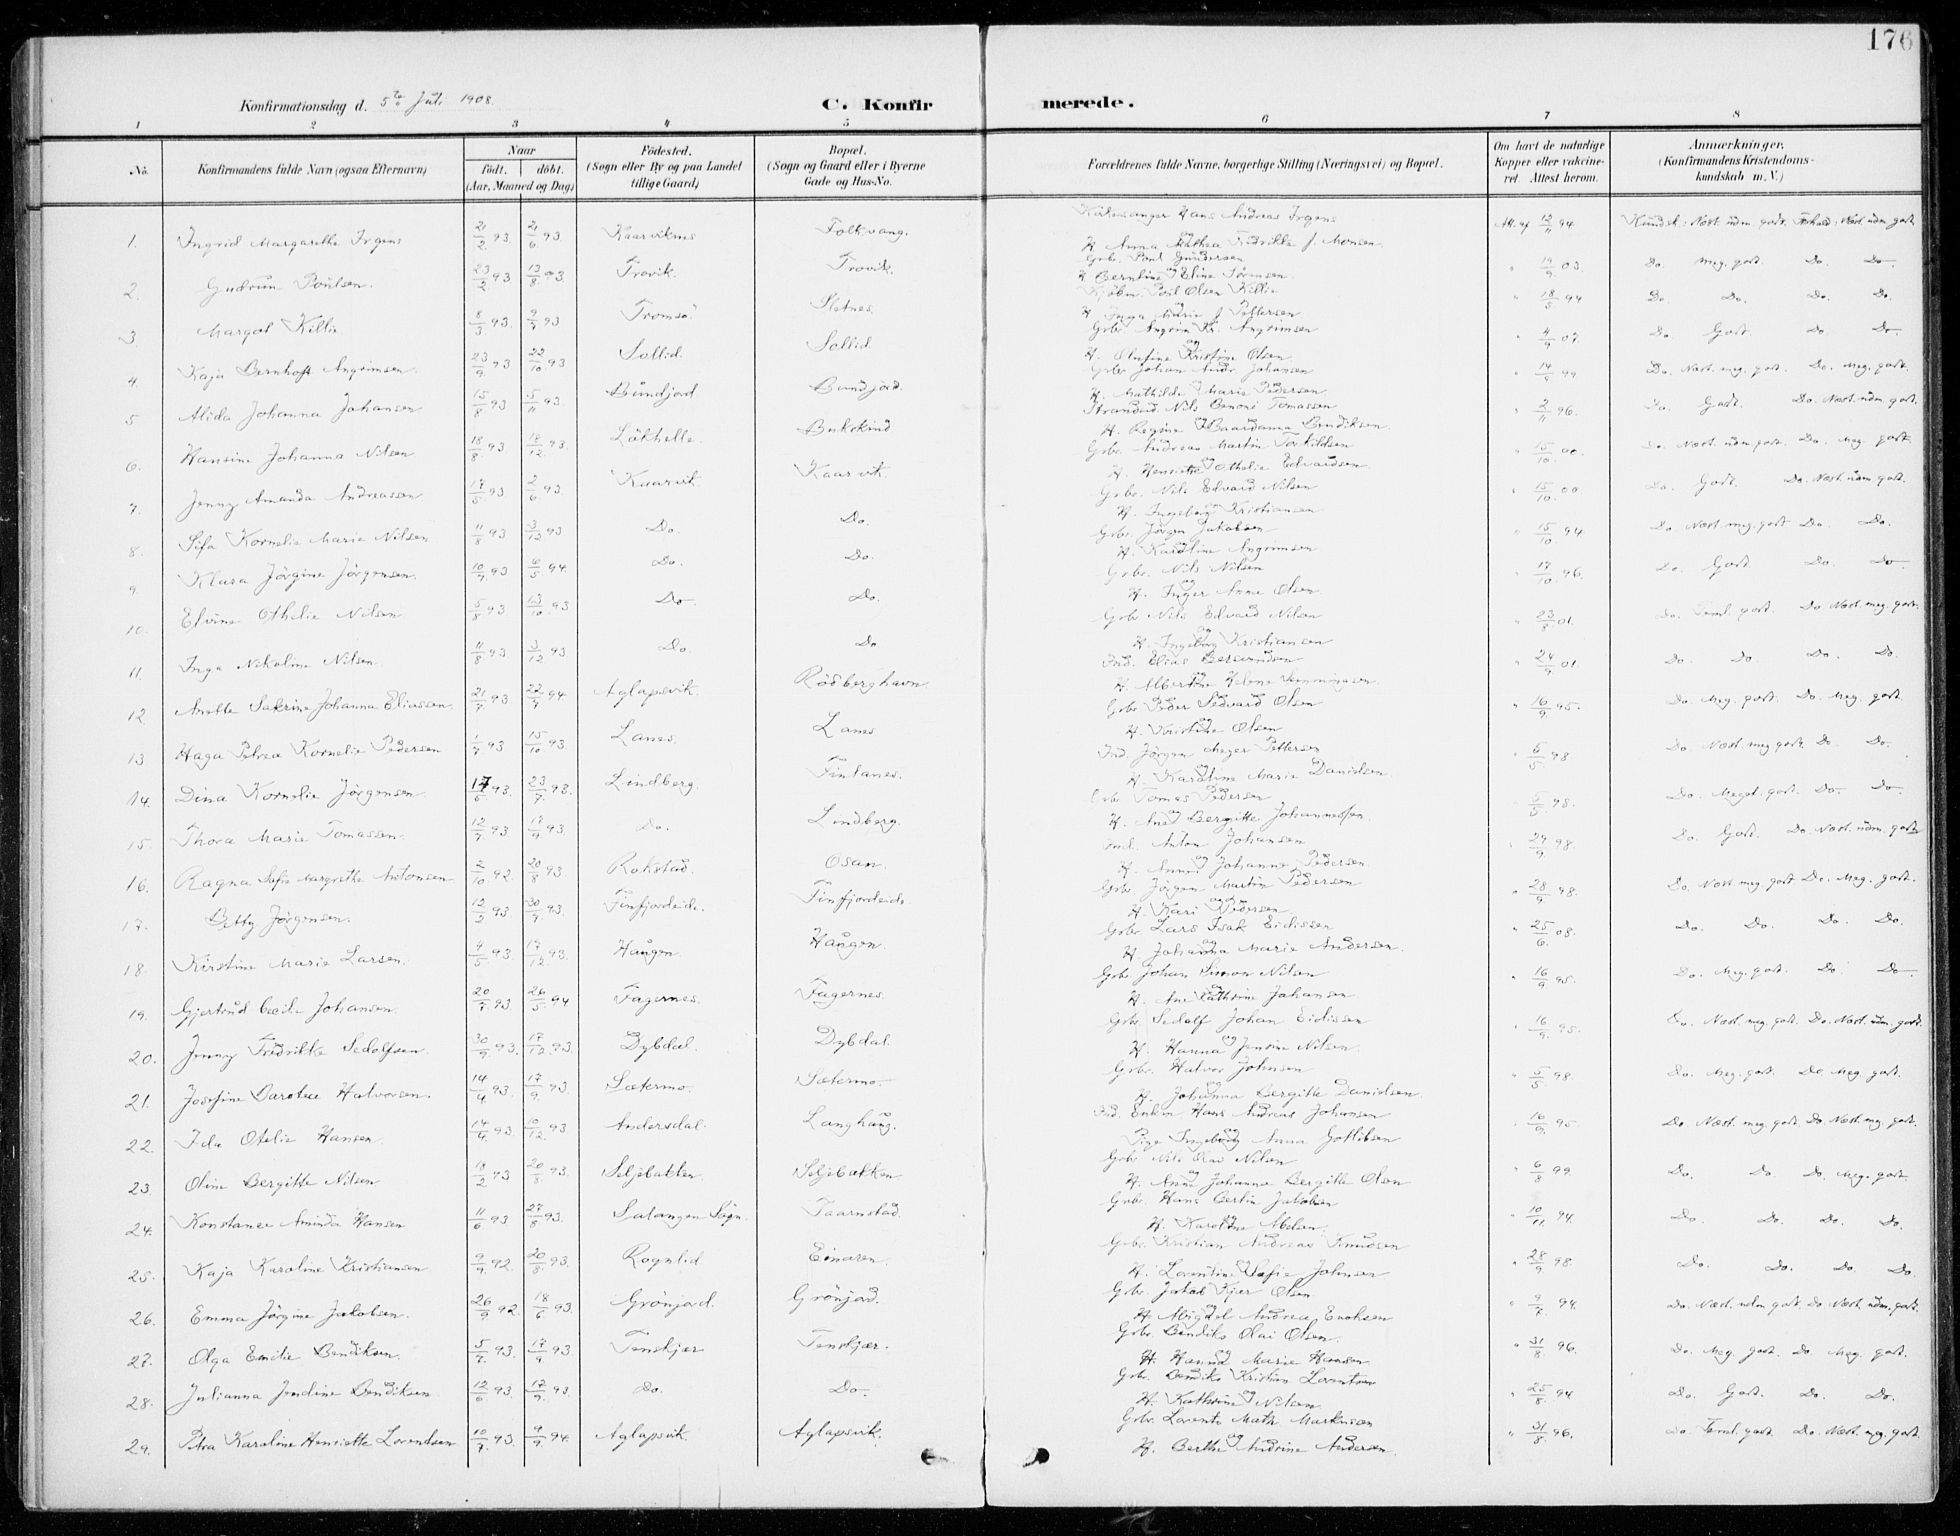 176
Konfirmationsdag d. 5te Juli 1908.
C. Konfirmerede.
1 2 3 4 5 6 7 8
No. Konfirmandens fulde Navn (ogsaa Efternavn) Naar födt. döbt. (Aar, Maaned og Dag) Födested. (Sogn eller By og paa Landet tillige Gaard) Bopæl. (Sogn og Gaard eller i Byerne Gade og Hus-No. Forældrenes fulde Navne, borgerlige Stilling (Næringsvei) og Bopæl. Om havt de naturlige Kopper eller vakcineret. Attest herom. Anmærkninger. (Konfirmandens Kristendomskundskab m. V.)
1. Ingrid Margarethe Irgens 21/2 93. 21/6 93. Kaarviknes Folkvang. Kirkesanger Hans Andreas Irgens og H. Anna Mathea Fredrikke J. Monsen. Att. af 12/11 94 Kundsk: Næst. udm. godt. Forhold: Næst udm. godt
2. Gudrun Poulsen. 23/2 93 13/8 93. Trovik. Trovik. Grbr. Poul Gundersen og H. Berntine Eline Sörensen. " 19/9 03. Do. Meg. godt. Do. Do.
3 Margot Killie 8/3 93. 9/7 93 Tromsö Sletnes. Kjöbm. Poul Olsen Killie og H. Inga Marie J. Pettersen " 18/5 94 Do. Do. Do. Do.
4. Kaja Bernhoft Angrimsen. 23/9 93 22/10 93 Sollid. Sollid. Grbr. Angrim Kr. Angrimsen og H. Olufine Kristine Olsen. " 4/9 07. Do Godt. Do. Do.
5 Alida Johanna Johansen 15/8 93 5/11 93. Bundfjord Bundfjord. Grbr. Johan Andr. Johansen og H. Mathilde Marie Pedersen " 14/9 99 Do. Næst. meg. godt. Do. Meg. godt.
6. Hansine Johanna Nilsen 18/8 93 18/12 93. Lökhelle. Bukskind Strandsid. Nils Benoni Tomassen og H. Regine Baardanna Bendiksen. " 2/11 96. Do. Godt. Do. Næst. udm. godt.
7. Jenny Amanda Andreassen 17/5 93 2/6 93. Kaarvik Kaarvik. Grbr. Andreas Martin Torkildsen og H. Henriette Othelie Edvardsen. " 15/10 00. Do. Næst udm godt. Do. Meg. godt.
8. Sifa Kornelie Marie Nilsen 11/8 93 3/12 93 Do. Do. Grbr. Nils Edvard Nilsen og H. Ingeborg Kristiansen " 15/10 00 Do. Godt. Do. Næst. udm godt.
9. Klara Jörgine Jörgensen. 10/7 93 6/5 94. Do. Do. Grbr. Jörgen Jakobsen og H. Karoline Angrimsen " 15/10 94 Do Næst meg. godt Do. Do.
10. Elvine Othelie Nilsen 5/8 93 13/10 93 Do. Do. Grbr. Nils Nilsen og H. Inger Anne Olsen. " 17/10 96. Do. Godt. Do. Do.
11. Inga Nikoline Nilsen. 11/8 93 3/12 93. Do. Do Grbr Nils Edvard Nilsen og H. Ingeborg Kristiansen " 23/8 01. Do. Teml. godt. Do Næst. meg. godt.
12 Anette Sakrine Johanna Eliassen. 21/7 93 22/7 94 Aglapsvik. Rödberghavn. Ind. Elias Bersvendsen og H. Albertine Helene Henningsen " 24/9 01. Do. Do. Do. Do.
13 Haga Petrea Kornelie Pedersen 1/7 93 15/10 93. Lanes. Lanes Grbr. Peder Sedvard Olsen og H. Kristine Olsen " 16/9 95. Do. Meg. godt. Do. Meg. godt.
14. Dina Kornelie Jörgensen. 17/5 93. 23/7 93. Lindberg. Finlanes. Ind. Jörgen Meyer Pettersen og H. Karoline Marie Danielsen " 5/5 98 Do. Næst meg godt. Do. Do.
15. Thora Marie Tomassen. 12/7 93 17/9 93 Do. Lindberg. Grbr. Tomas Pedersen og H. Ane Bergitte Johannessen. " 5/5 98. Do. Meget. godt. Do. Do.
16. Ragna Sofie Margrethe Antonsen 2/10 92. 20/8 93. Rokstad. Osan. Ind. Anton Johansen og H. Anna Johanne Pedersen. " 29/9 98. Do. Godt. Do. Næst. udm. godt
17. Betty Jörgensen. 12/2 93. 30/7 93. Finfjordeide. Finfjordeide. Grbr. Jörgen Martin Pedersen og H. Kari Pedersen " 28/9 98. Do. Næst. meg. godt Do. Meg. godt.
18. Kirstine Marie Larsen. 4/5 93. 17/12 93. Haugen. Haugen. Grbr. Lars Isak Eidissen og H. Johanna Marie Andersen. " 25/6 08. Do. Do. Do. Do.
19. Gjertrud Cecilie Johansen. 20/7 93. 26/5 94 Fagernes. Fagernes. Grbr Johan Simon Nilsen og H. Ane Kathrine Johansen " 16/9 95. Do. Meg. godt. Do. Do.
20. Jenny Fredrikke Sedolfsen. 30/9 93. 17/12 93. Dybdal. Dybdal. Grbr. Sedolf Johan Eidissen og H. Hanna Jensine Nilsen. " 16/9 95. Do. Næst. meg. godt. Do. Næst. udm. godt.
21. Josefine Darotea Halvorsen. 14/4 93. 17/9 93. Sætermo. Sætermo. Grbr. Halvor Johnsen og H. Johanna Bergitte Danielsen. " 5/5 98 Do. Meg. godt. Do. Meg. godt.
22. Ida Otelie Hansen. 14/4 93. 10/12 93 Andersdal. Langhaug. Ind. Enkm. Hans Andreas Johansen og Pige Ingeborg Anna Gotlibsen " 16/9 95. Do Næst. meg. godt Do Næst. meg. godt.
23. Oline Bergitte Nilsen 18/2 93 20/8 93. Seljebakken. Seljebakken Grbr Nils Olai Nilsen og H. Anne Johanna Bergitte Olsen " 6/8 99 Do. Do. Do. Meg. godt.
24. Konstance Aminda Hansen 11/6 93 27/8 93. Salangen Sogn. Taarnstad. Grbr. Hans Bertin Jakobsen og H. Karoline Abelsen. " 10/11 94. Do. Do. Do. Do.
25. Kaja Karoline Kristiansen 9/9 92. 20/8 93. Rognlid Einaren. Grbr. Kristian Andreas Knudsen og H. Lorentine Sofie Johnsen " 28/9 98. Do. Do. Do. Do
26. Emma Jörgine Jakobsen. 26/9 92. 18/6 93. Grönjord. Grönjord. Grbr. Jakob Kjer Olsen og H. Abigael Andrea Enoksen " 9/7 94. Do. Næst. udm godt. Do Næst. udm. godt.
27. Olga Emilie Bendiksen. 5/7 93. 17/9 93. Tenskjær Tenskjær. Grbr. Bendiks Olai Olsen. og H. Hanna Marie Hansen " 31/8 96. Do. Meg. godt. Do. Meg. godt.
28. Julianna Jendine Bendiksen. 12/6 93. 17/9 93. Do. Do. Grbr. Bendiks Kristian Lorentsen og H. Kathrine Nilsen. " 25/8 94 Do. Godt. Do. Do.
29. Petra Karoline Henriette Lorentsen 10/7 93. 9/9 94. Aglapsvik. Aglapsvik. Grbr. Lorents Math. Markussen og H. Berthe Andrine Andersen. " 31/8 96. Do. Teml. godt. Do. Næst. meg. godt.